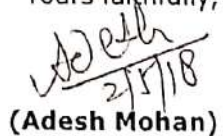 Yours faithfully,
Adesh
2/5/18
(Adesh Mohan)